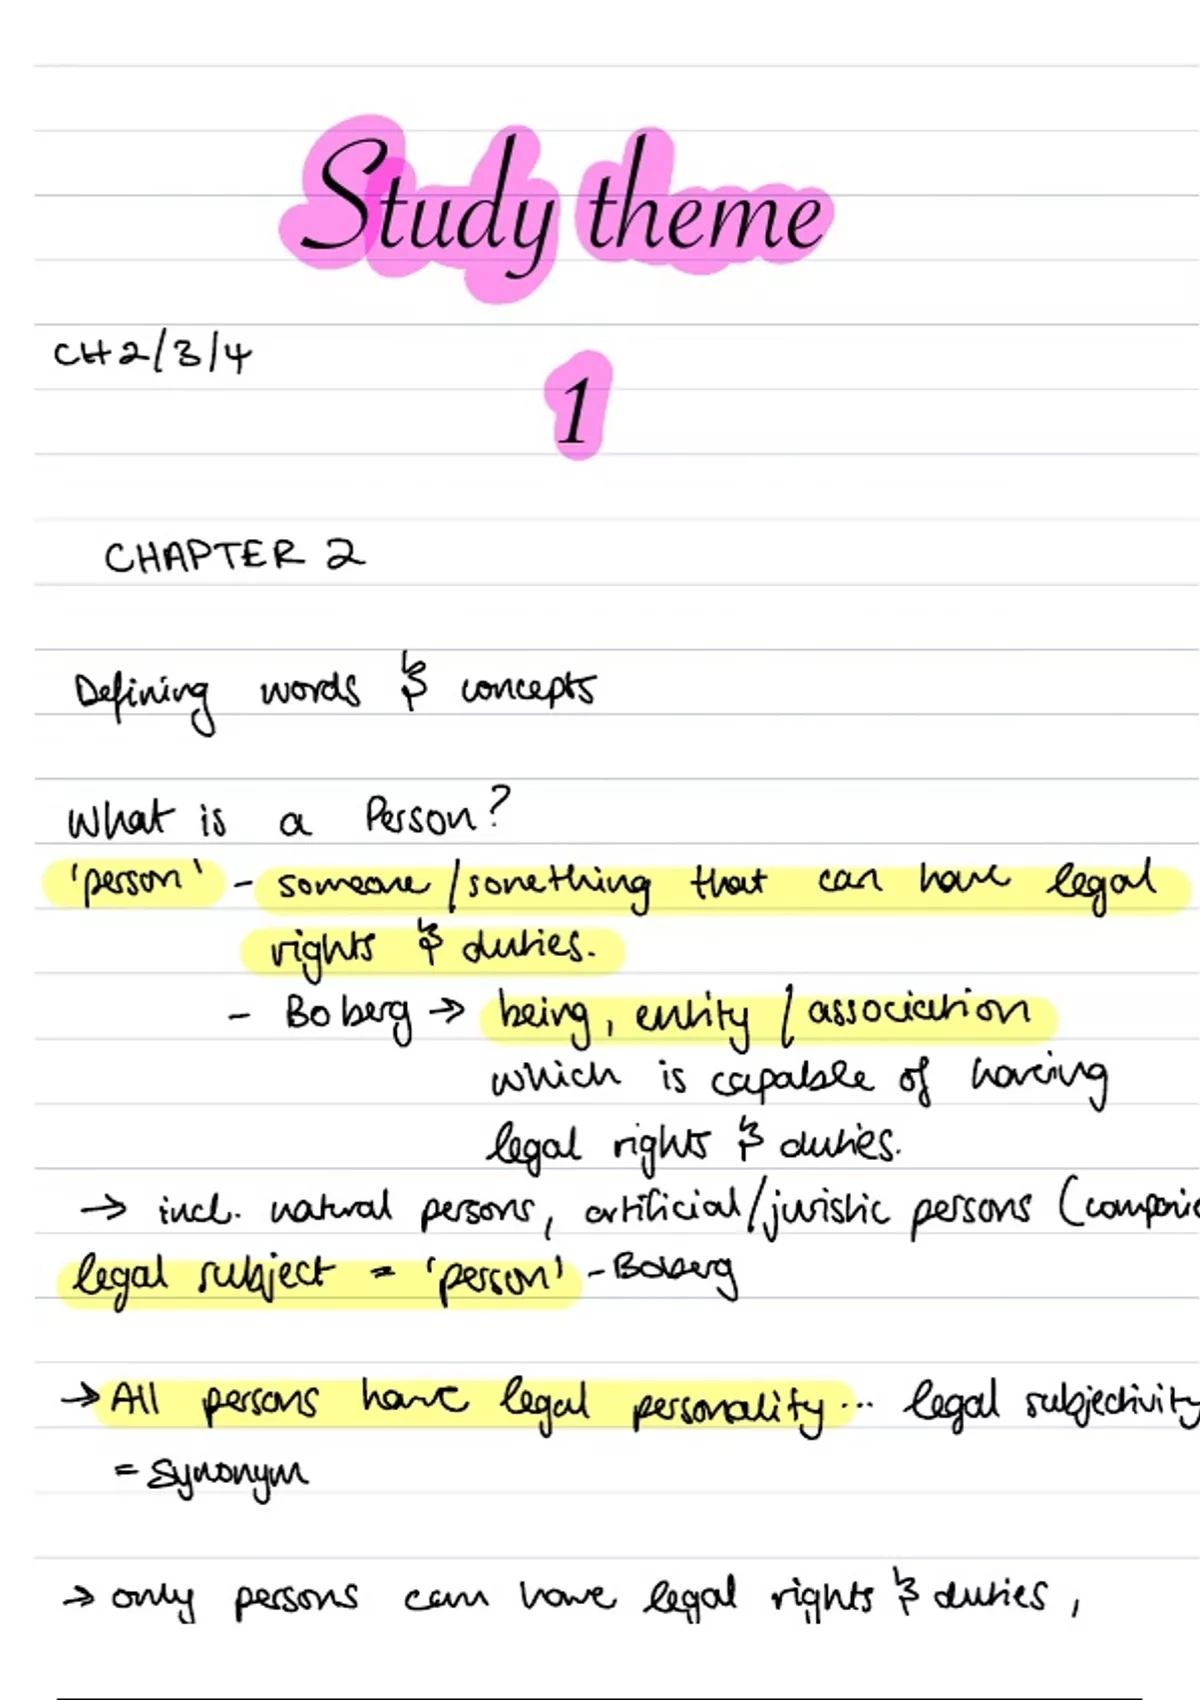 Study theme
CH 2/3/4
1
CHAPTER 2
Defining words & concepts
What is a Person?
'person' - someone/something that can have legal
rights & duties.
- Boberg → being, entity / association
which is capable of having
legal rights & duties.
→ incl. natural persons, artificial/juristic persons (companie
legal subject = 'person' - Boberg
→ All persons have legal personality... legal subjectivity
= synonym
→ only persons can have legal rights & duties,